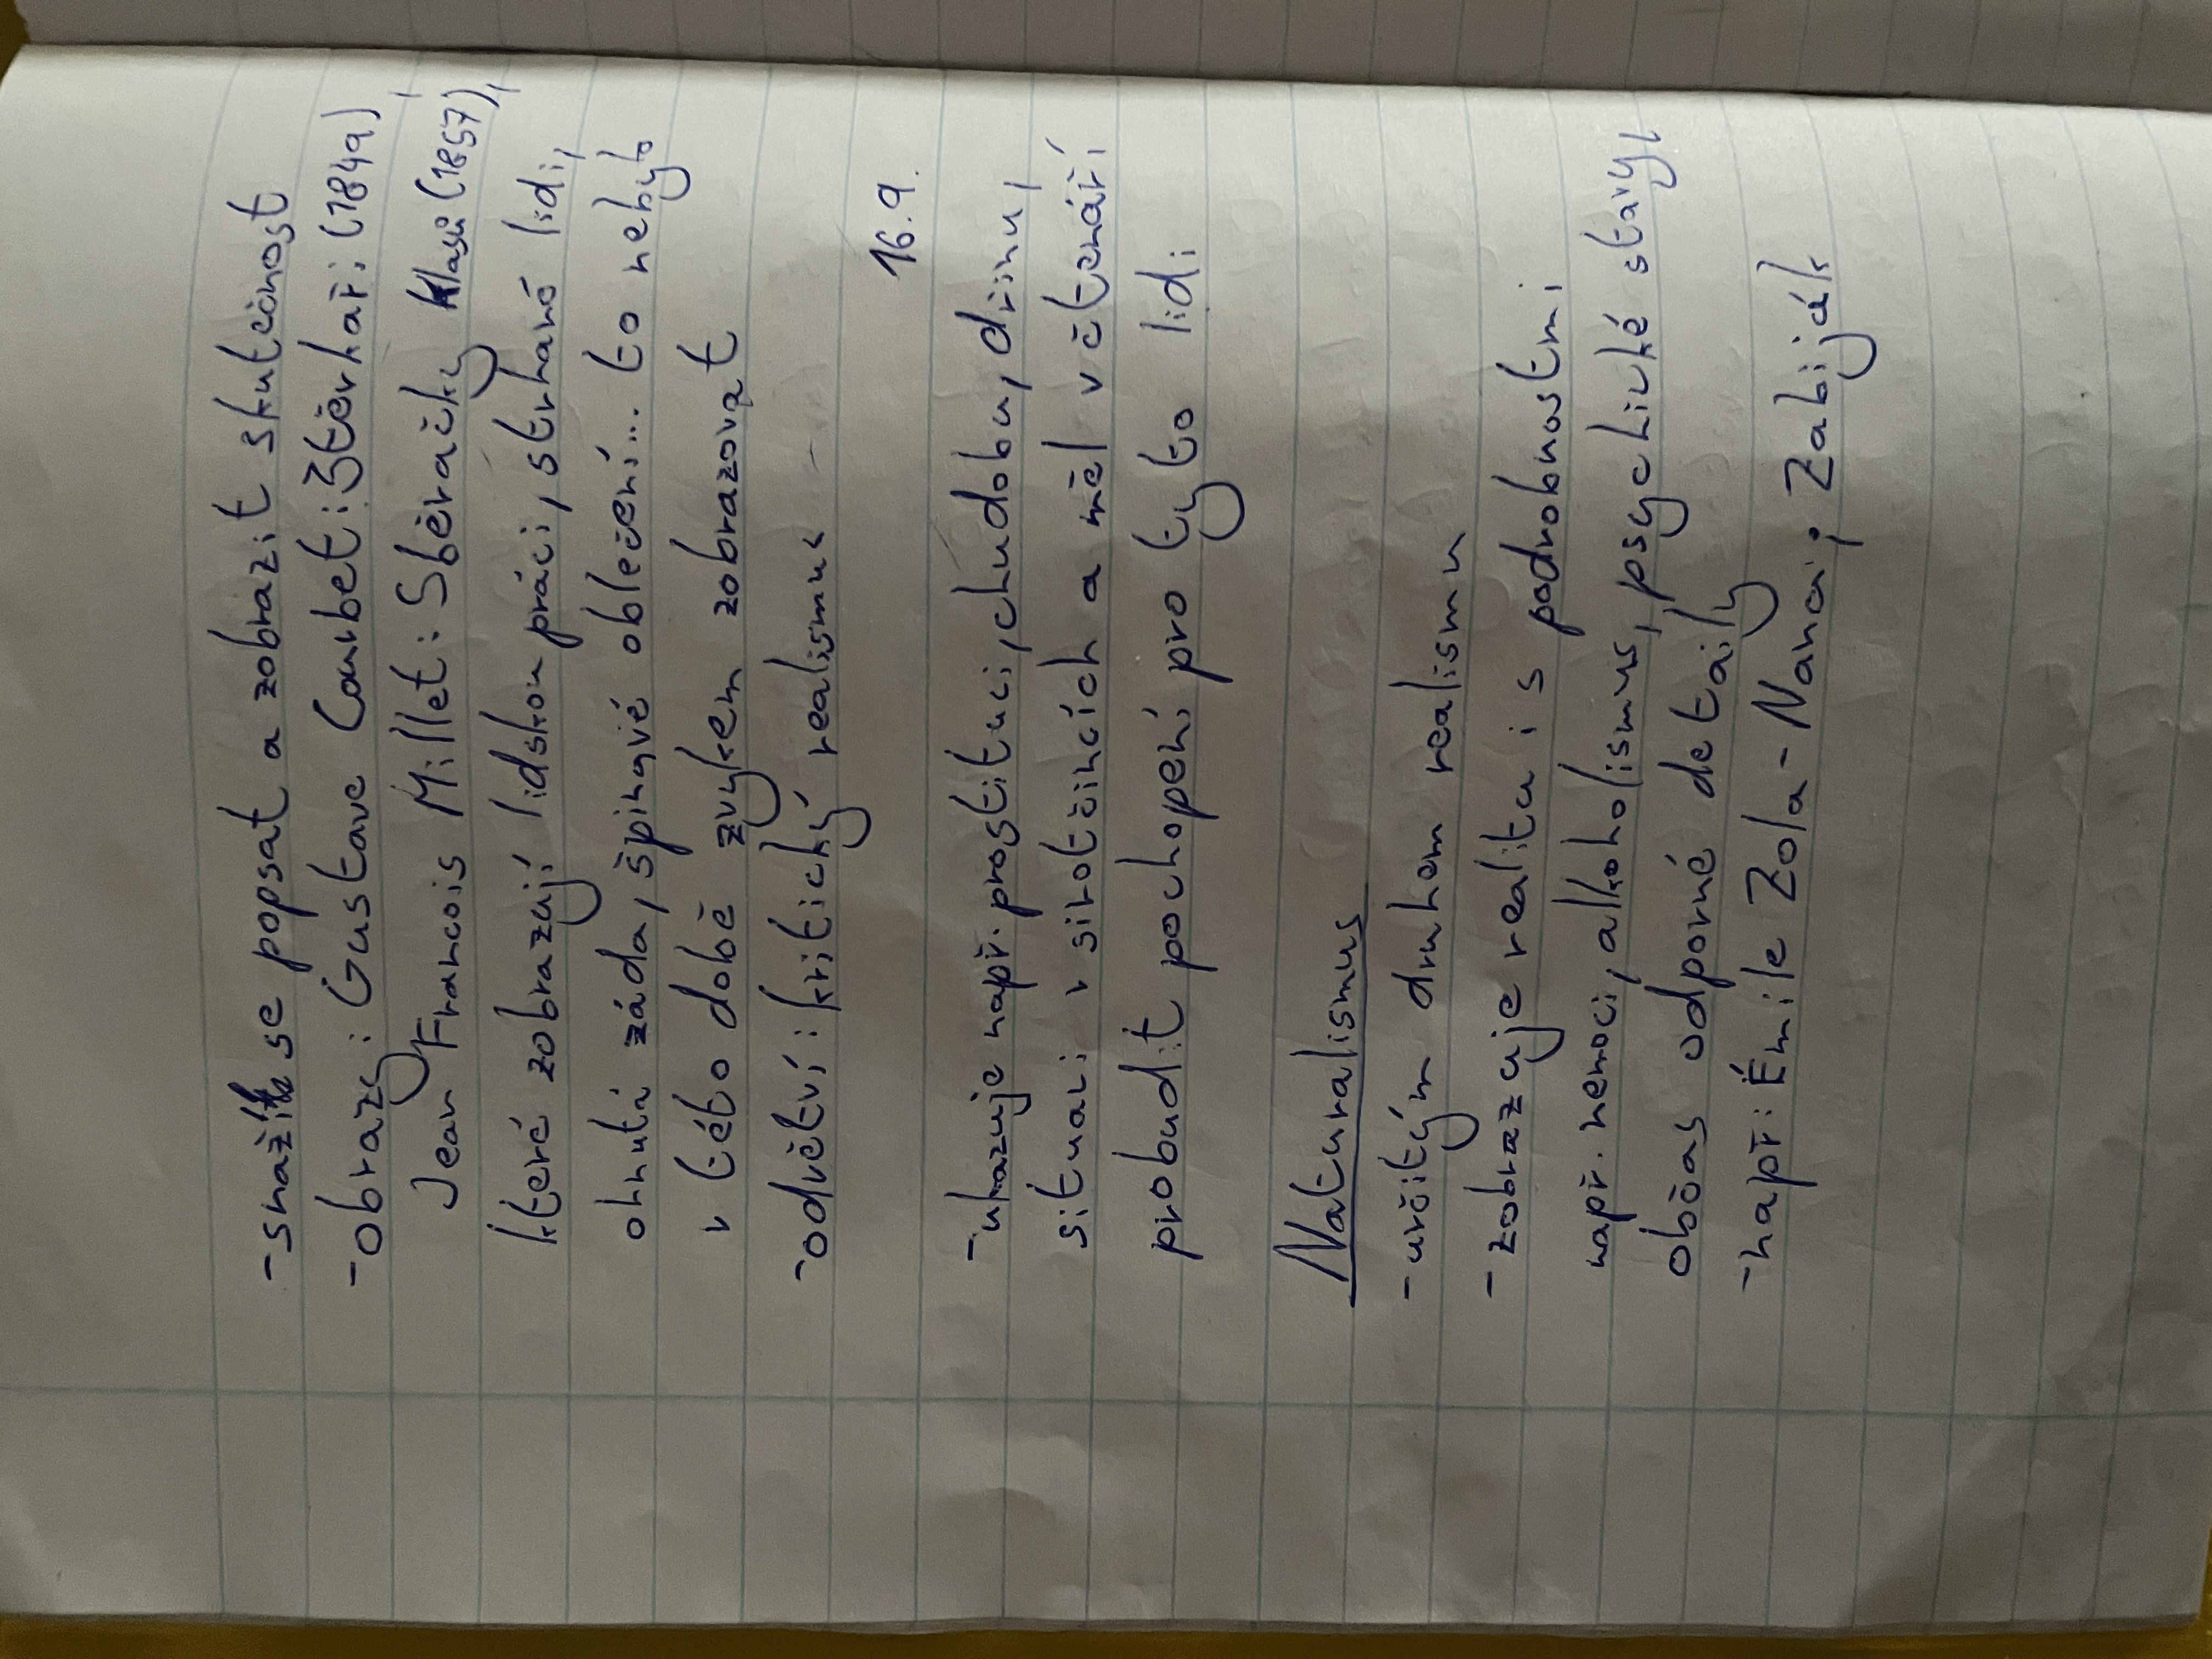 - se popsat a zobrazit skutečnost
- obrazy: Gustave Courbet: Štěrkaři (1849),
Jean Francois Millet: Sběračky klasů (1857),
které zobrazují lidskou práci, strhané lidi,
ohnutá záda, špinavé oblečení... to nebylo
v této době zvykem zobrazovat
- odvětví: kritický realismus
16.9.
- ukazuje např. prostituci, chudobu, dřinu,
situaci v sirotčincích a měl v čtenáří
probudit pochopení pro tyto lidi
Naturalismus
- určitým druhem realismu
- zobrazuje realitu i s podrobnostmi
např. nemoci, alkoholismus, psychické stavy,
občas odporné detaily
- např: Émile Zola - Nana; Zabiják